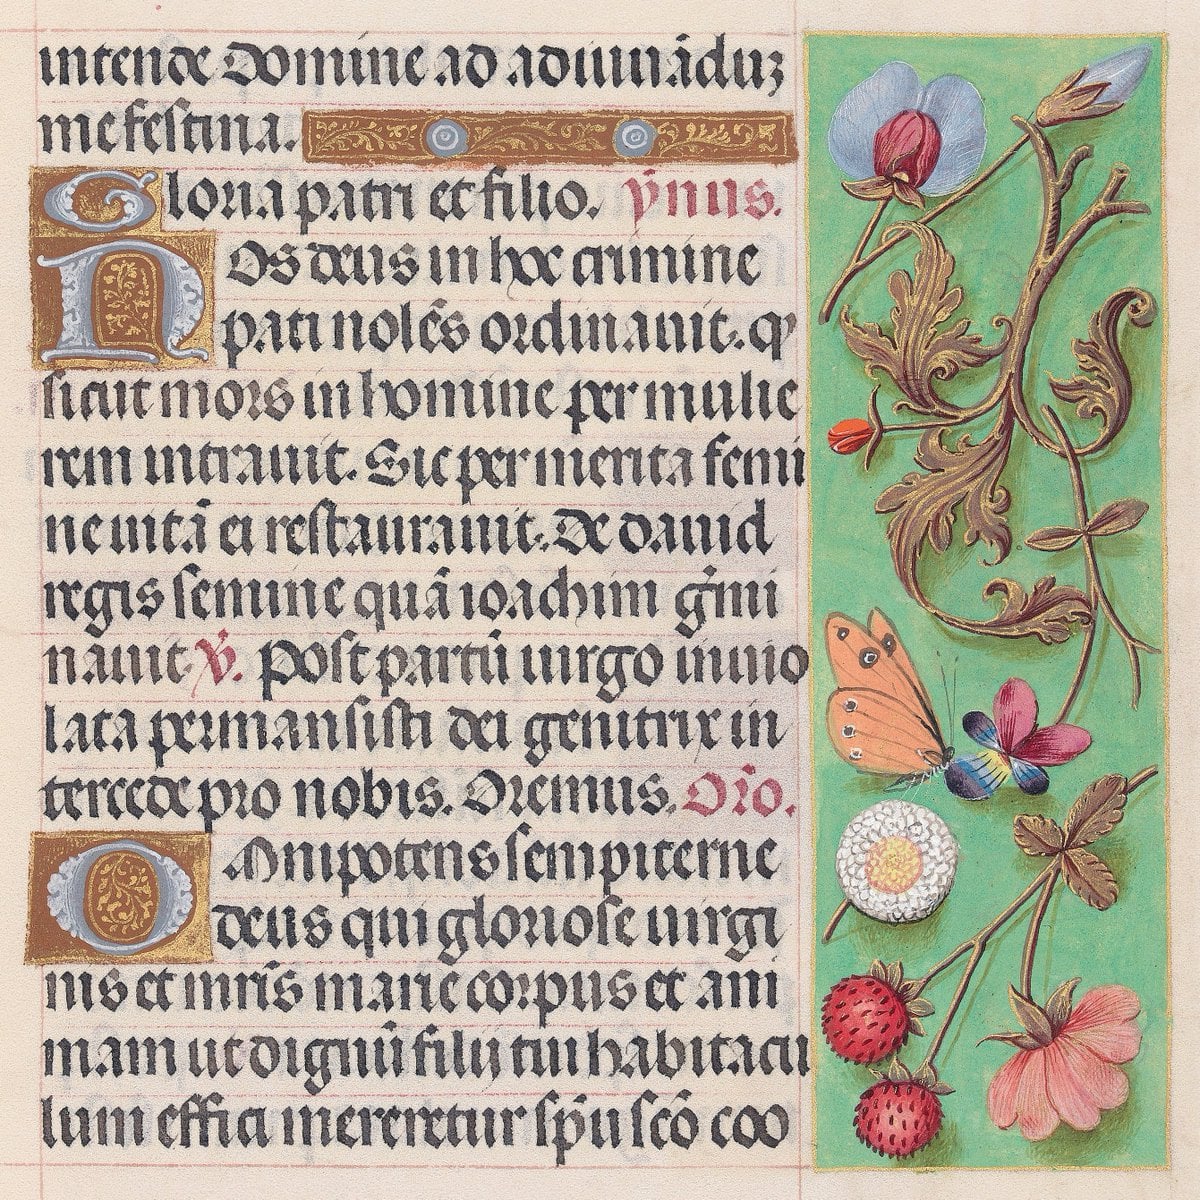 intende Domine ad adiuuãduʒ
me festina.
Gloria patri et filio. ỹnus.
Nos deus in hoc crimine
pati nolẽs ordinauit. qꝫ
sicut mors in homine per mulie
rem intrauit. Sic per merita femi
ne uitã ei restaurauit. De dauid
regis semine quã ioachim g̃mi
nauit. ℣. Post partũ uirgo inuio
lata permansisti dei genitrix in
tercede pro nobis. Oremus. Or̃o.
Omnipotens sempiterne
deus qui gloriose uirgi
nis et mr̃is marie corpus et ani
mam ut dignũ filij tui habitacu
lum effici mereretur sp̃u sc̃o coo